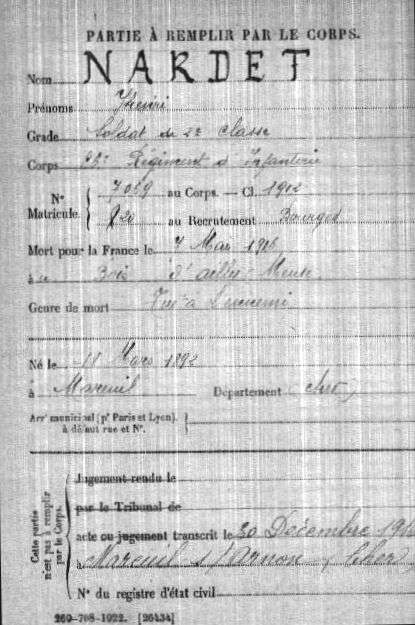 PARTIE À REMPLIR PAR LE CORPS.
Nom NARDET
Prénoms Henri
Grade Soldat de 2e classe
Corps 95e Régiment d'Infanterie
N° Matricule. 7059 au Corps. — Cl. 1912
820 au Recrutement Bourges
Mort pour la France le 7 Mars 1916
à au Bois d'ailly Meuse
Genre de mort Tué à l'ennemi
Né le 18 Mars 1892
à Mareuil Département Cher
Arrt municipal (pr Paris et Lyon),
à défaut rue et N°.
Cette partie n'est pas à remplir par le Corps.
Jugement rendu le
par le Tribunal de
acte ou jugement transcrit le 20 Décembre
à Mareuil s/ Arnon (Cher)
N° du registre d'état civil
269-708-1922. [26434]